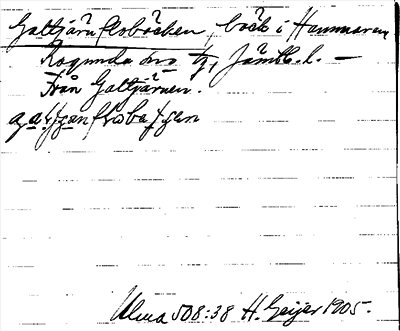 Galtjärnflobäcken, bäck i Hammaren
Ragunda sn o tg, Jämtl. l. —
Från Galtjärnen.
Ulma 508:38 H. Geijer 1905.